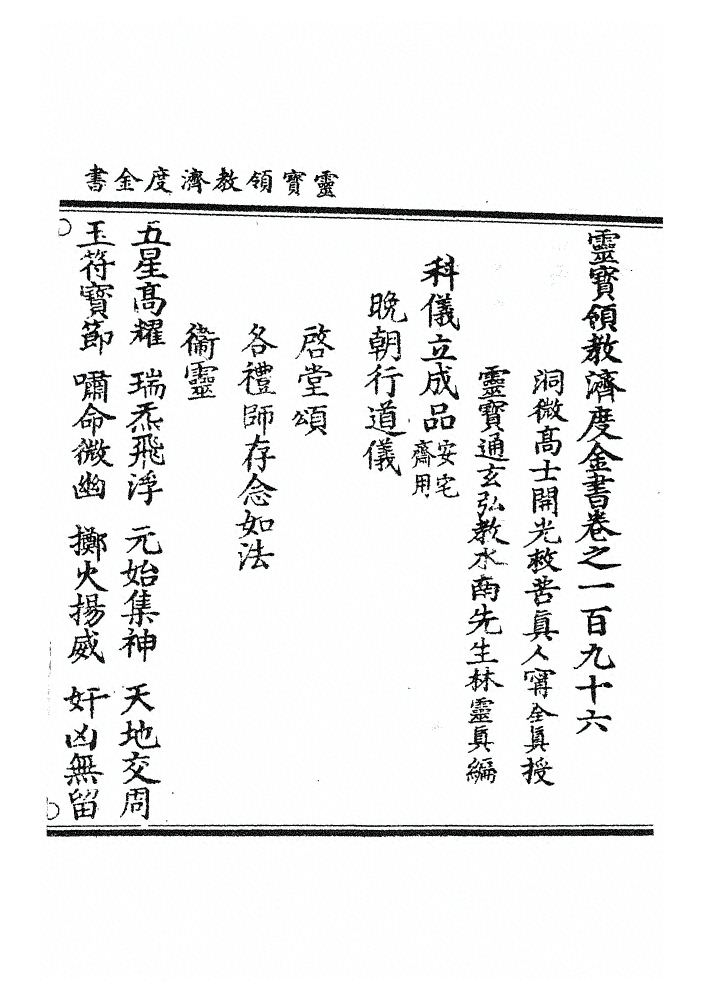 靈寳領教濟度金書
靈寳領教濟度金書卷之一百九十六
洞微髙士開光救苦眞人寗全眞授
靈寳通玄弘教水南先生林靈眞編
科儀立成品安宅齋用
晚朝行道儀
啓堂頌
各禮師存念如法
衞靈
五星髙耀 瑞炁飛浮 元始集神 天地交周
玉符寳節 嘯命微幽 擲火揚威 奸凶無留